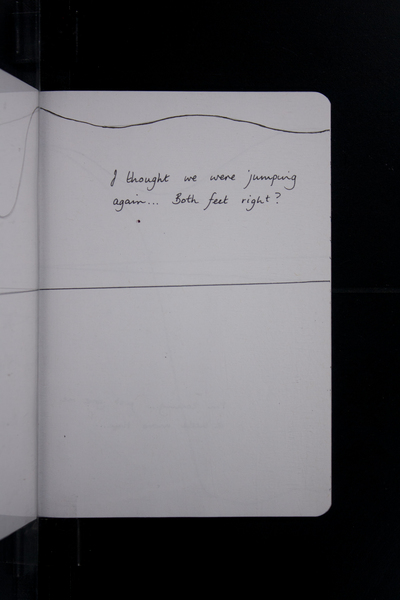 I thought we were jumping
again... Both feet right?